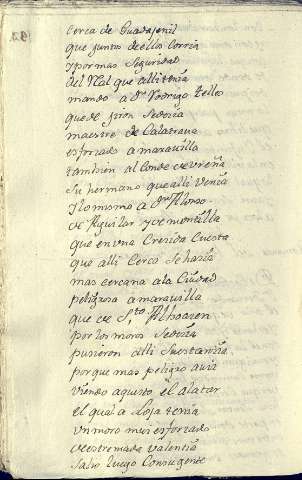 92
cerca de Guadajenil
que juntos de ellos corria
y por mas Seguridad
del Real que alli tenia
mando a Dn Rodrigo tellez
que de jiron Sedecia
maestre de Calatrava
esforzado a maravilla
tambien al Conde de Vreña
Su hermano que alli Venia
y lo mismo a Dn Alonso
de Aguilar y de montilla
que en vna Crecida Cuesta
que alli Cerca Se hacia
mas cercana a la Ciudad
peligrosa a maravilla
que de Sto Alhoacen
por los moros Se decia
pusieron alli Su estancia
porque mas peligro avia
viendo aquesto el alatar
el qual a Loja tenia
vn moro mui esforzado
de estremada valentia
Salio luego Con su gente